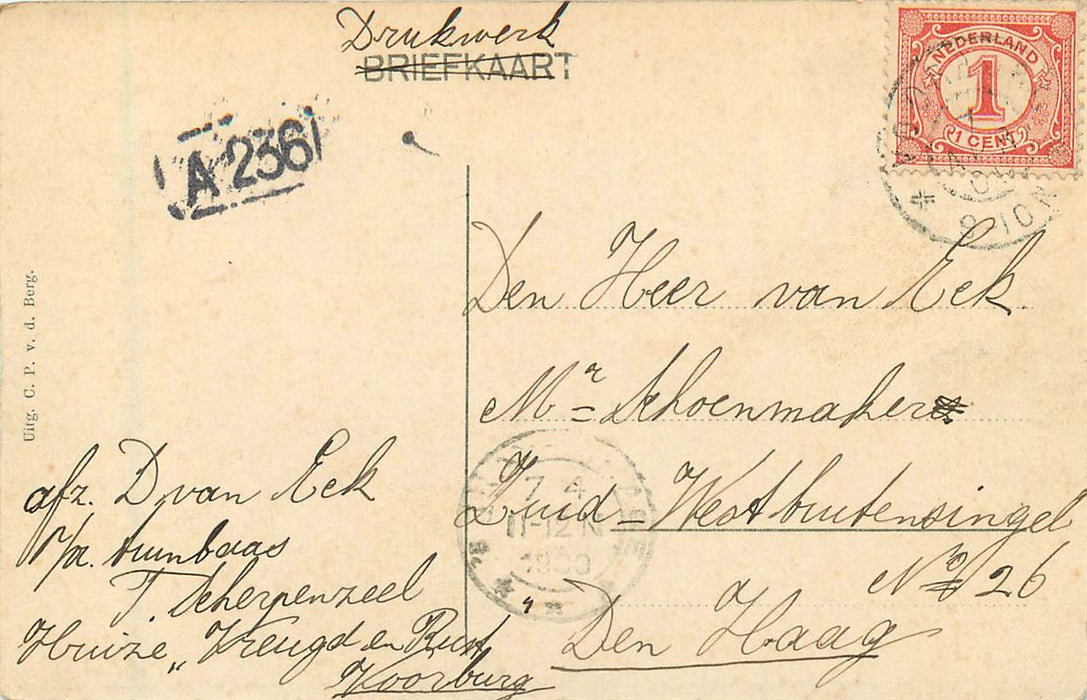 Drukwerk
BRIEFKAART
NEDERLAND
1
1 CENT
A 236
8-10N
Den Heer van Eck.
Mr = Schoenmaker
Zuid = Westbuitensingel
No 26
Den Haag
7 4
11-12 N
1909
Uitg. C. P. v. d. Berg.
afz. D. van Eck
p/a. tuinbaas
T. Scherpenzeel
Huize „Vreugd en Rust
Voorburg